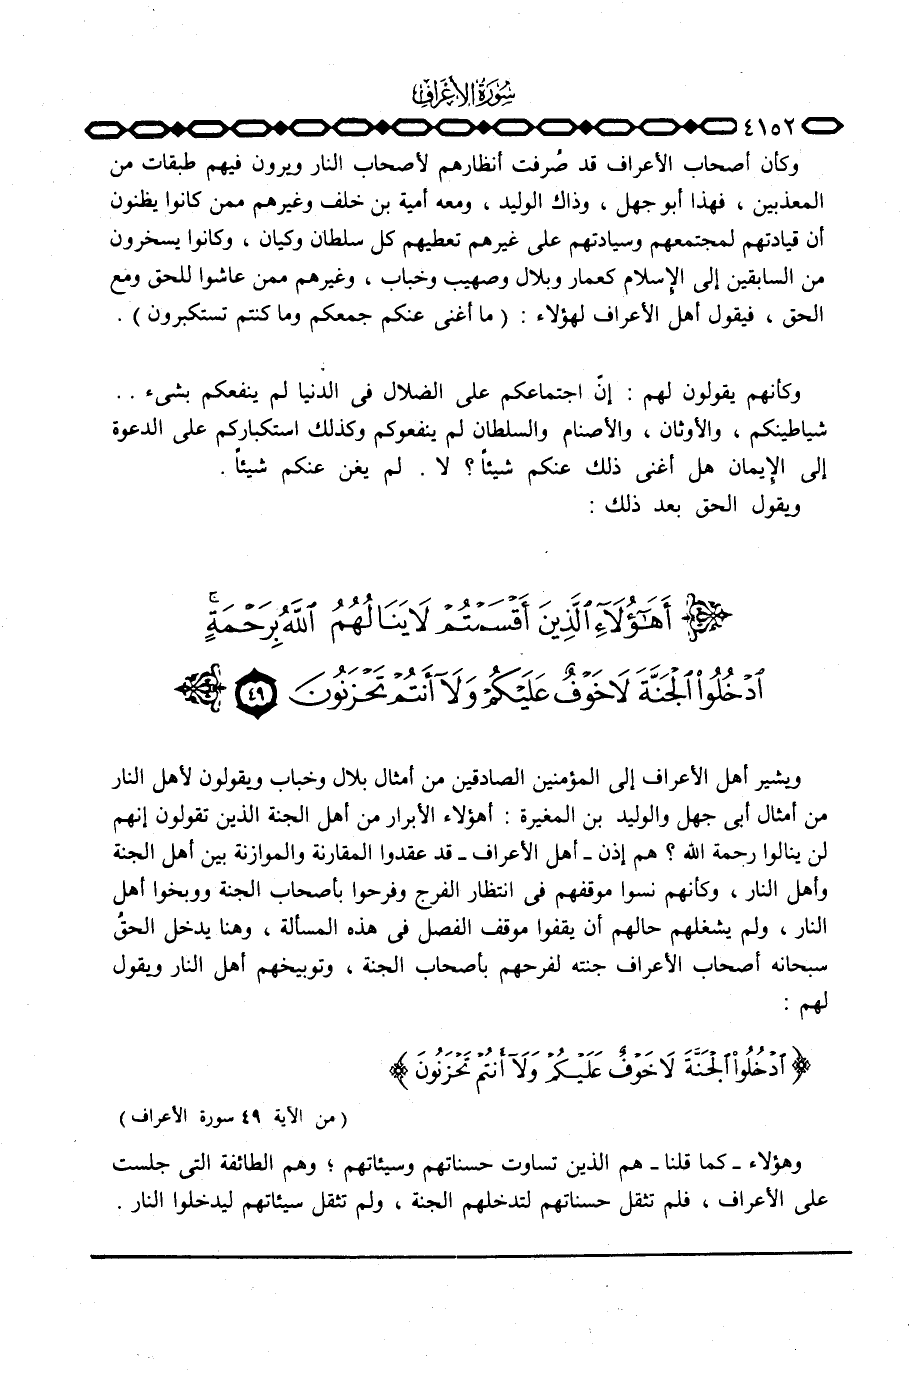 سُورَةُ الأَعْرَافِ
٤١٥٢
وكأن أصحاب الأعراف قد صُرفت أنظارهم لأصحاب النار ويرون فيهم طبقات من
المعذبين ، فهذا أبو جهل ، وذاك الوليد ، ومعه أمية بن خلف وغيرهم ممن كانوا يظنون
أن قيادتهم لمجتمعهم وسيادتهم على غيرهم تعطيهم كل سلطان وكيان ، وكانوا يسخرون
من السابقين إلى الإسلام كعمار وبلال وصهيب وخباب ، وغيرهم ممن عاشوا للحق ومع
الحق ، فيقول أهل الأعراف لهؤلاء : ( ما أغنى عنكم جمعكم وما كنتم تستكبرون ) .
وكأنهم يقولون لهم : إنّ اجتماعكم على الضلال فى الدنيا لم ينفعكم بشىء . .
شياطينكم ، والأوثان ، والأصنام والسلطان لم ينفعوكم وكذلك استكباركم على الدعوة
إلى الإيمان هل أغنى ذلك عنكم شيئاً ؟ لا . لم يغن عنكم شيئاً .
ويقول الحق بعد ذلك :
أَهَٰٓؤُلَآءِ ٱلَّذِينَ أَقۡسَمۡتُمۡ لَا يَنَالُهُمُ ٱللَّهُ بِرَحۡمَةٍۚ
ٱدۡخُلُواْ ٱلۡجَنَّةَ لَا خَوۡفٌ عَلَيۡكُمۡ وَلَآ أَنتُمۡ تَحۡزَنُونَ ٤٩
ويشير أهل الأعراف إلى المؤمنين الصادقين من أمثال بلال وخباب ويقولون لأهل النار
من أمثال أبى جهل والوليد بن المغيرة : أهؤلاء الأبرار من أهل الجنة الذين تقولون إنهم
لن ينالوا رحمة الله ؟ هم إذن ـ أهل الأعراف ـ قد عقدوا المقارنة والموازنة بين أهل الجنة
وأهل النار ، وكأنهم نسوا موقفهم فى انتظار الفرج وفرحوا بأصحاب الجنة ووبخوا أهل
النار ، ولم يشغلهم حالهم أن يقفوا موقف الفصل فى هذه المسألة ، وهنا يدخل الحقُ
سبحانه أصحاب الأعراف جنته لفرحهم بأصحاب الجنة ، وتوبيخهم أهل النار ويقول
لهم :
﴿ ٱدۡخُلُواْ ٱلۡجَنَّةَ لَا خَوۡفٌ عَلَيۡكُمۡ وَلَآ أَنتُمۡ تَحۡزَنُونَ ﴾
( من الآية ٤٩ سورة الأعراف )
وهؤلاء ـ كما قلنا ـ هم الذين تساوت حسناتهم وسيئاتهم ؛ وهم الطائفة التى جلست
على الأعراف ، فلم تثقل حسناتهم لتدخلهم الجنة ، ولم تثقل سيئاتهم ليدخلوا النار .